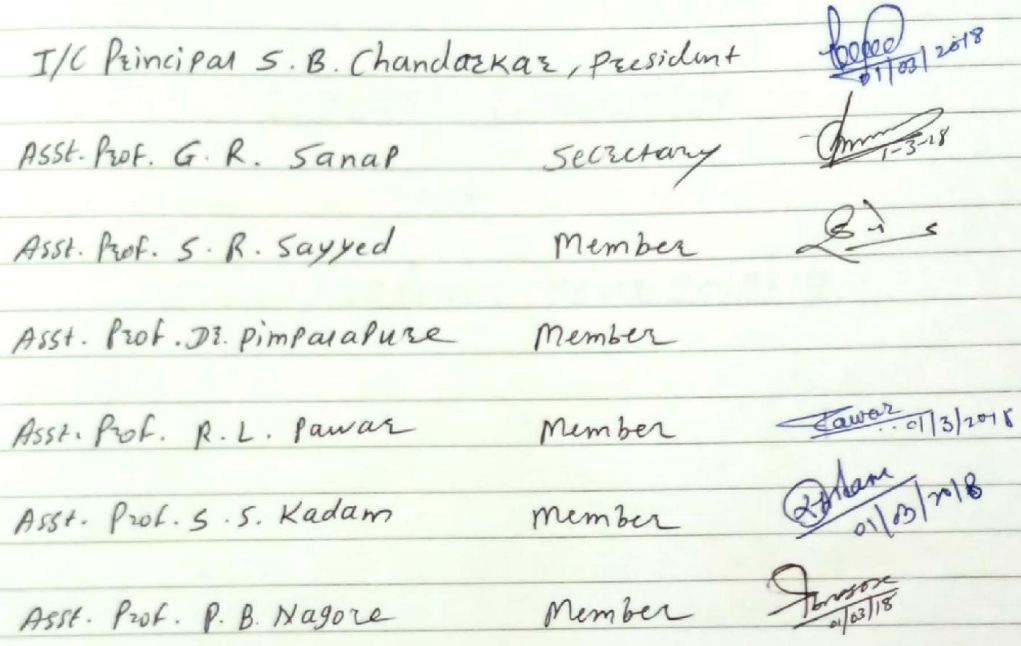 I/C Principal S. B. Chandarkar, President 01/03/2018
Asst. Prof. G. R. Sanap Secretary 1-3-18
Asst. Prof. S. R. Sayyed Member
Asst. Prof. Dr. Pimparapure Member
Asst. Prof. R. L. Pawar Member Pawar 01/3/2018
Asst. Prof. S. S. Kadam Member 01/03/2018
Asst. Prof. P. B. Nagore Member 01/03/18